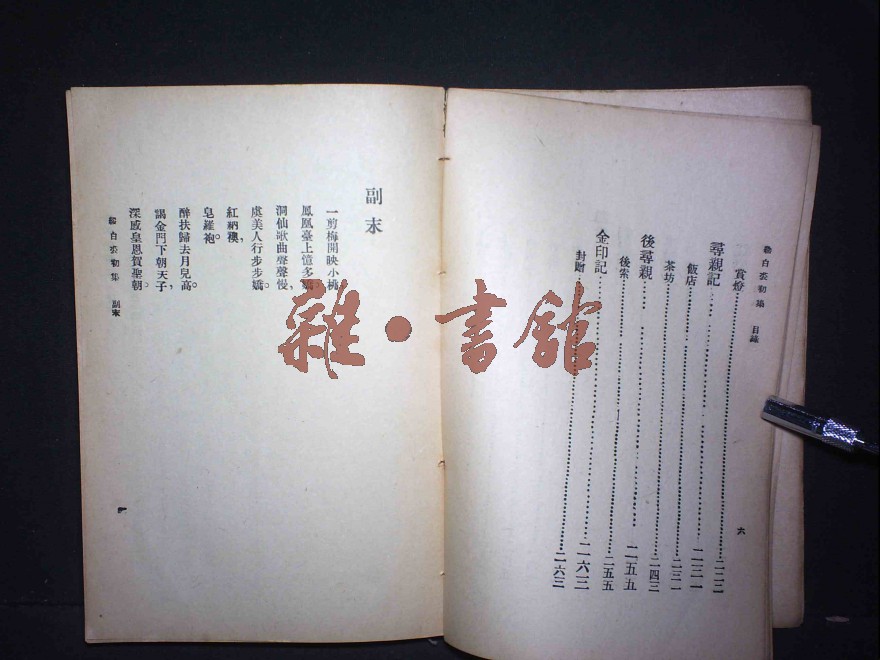 綴白裘初集　目錄
六
賞燈………二一三
尋親記………二二一
飯店………二二一
茶坊………二三一
後索………二四三
後尋親………二五五
金印記………二五五
封贈………二六三
雜·書館
副末
一剪梅開映小桃，
鳳凰臺上憶多嬌。
洞仙歌曲聲聲慢，
虞美人行步步嬌。
紅衲襖，
皂羅袍。
醉扶歸去月兒高。
謁金門下朝天子，
深感皇恩賀聖朝。
綴白裘初集　副末
一